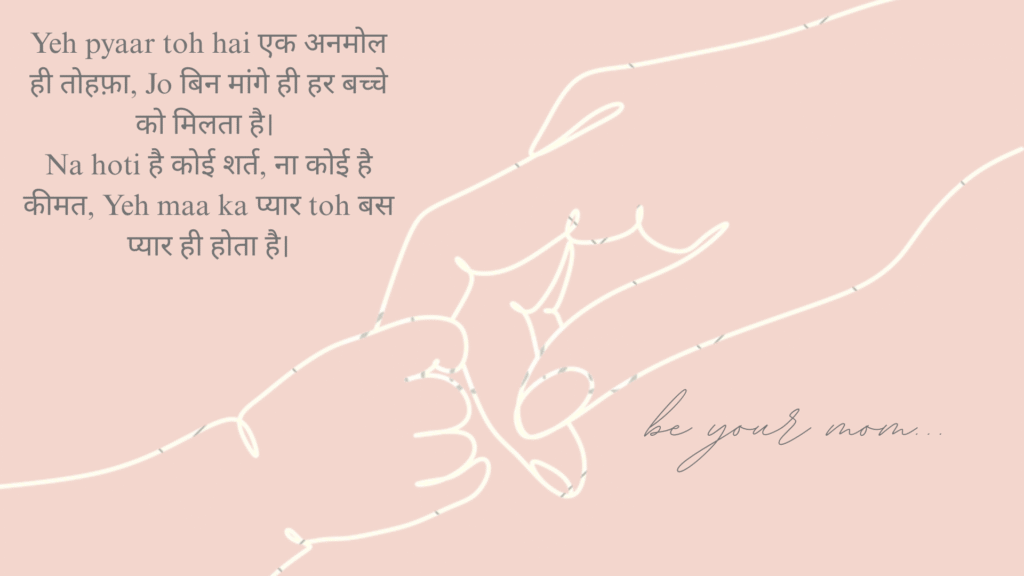 Yeh pyaar toh hai एक अनमोल
ही तोहफ़ा, Jo बिन मांगे ही हर बच्चे
को मिलता है।
Na hoti है कोई शर्त, ना कोई है
कीमत, Yeh maa ka प्यार toh बस
प्यार ही होता है।
be your mom...